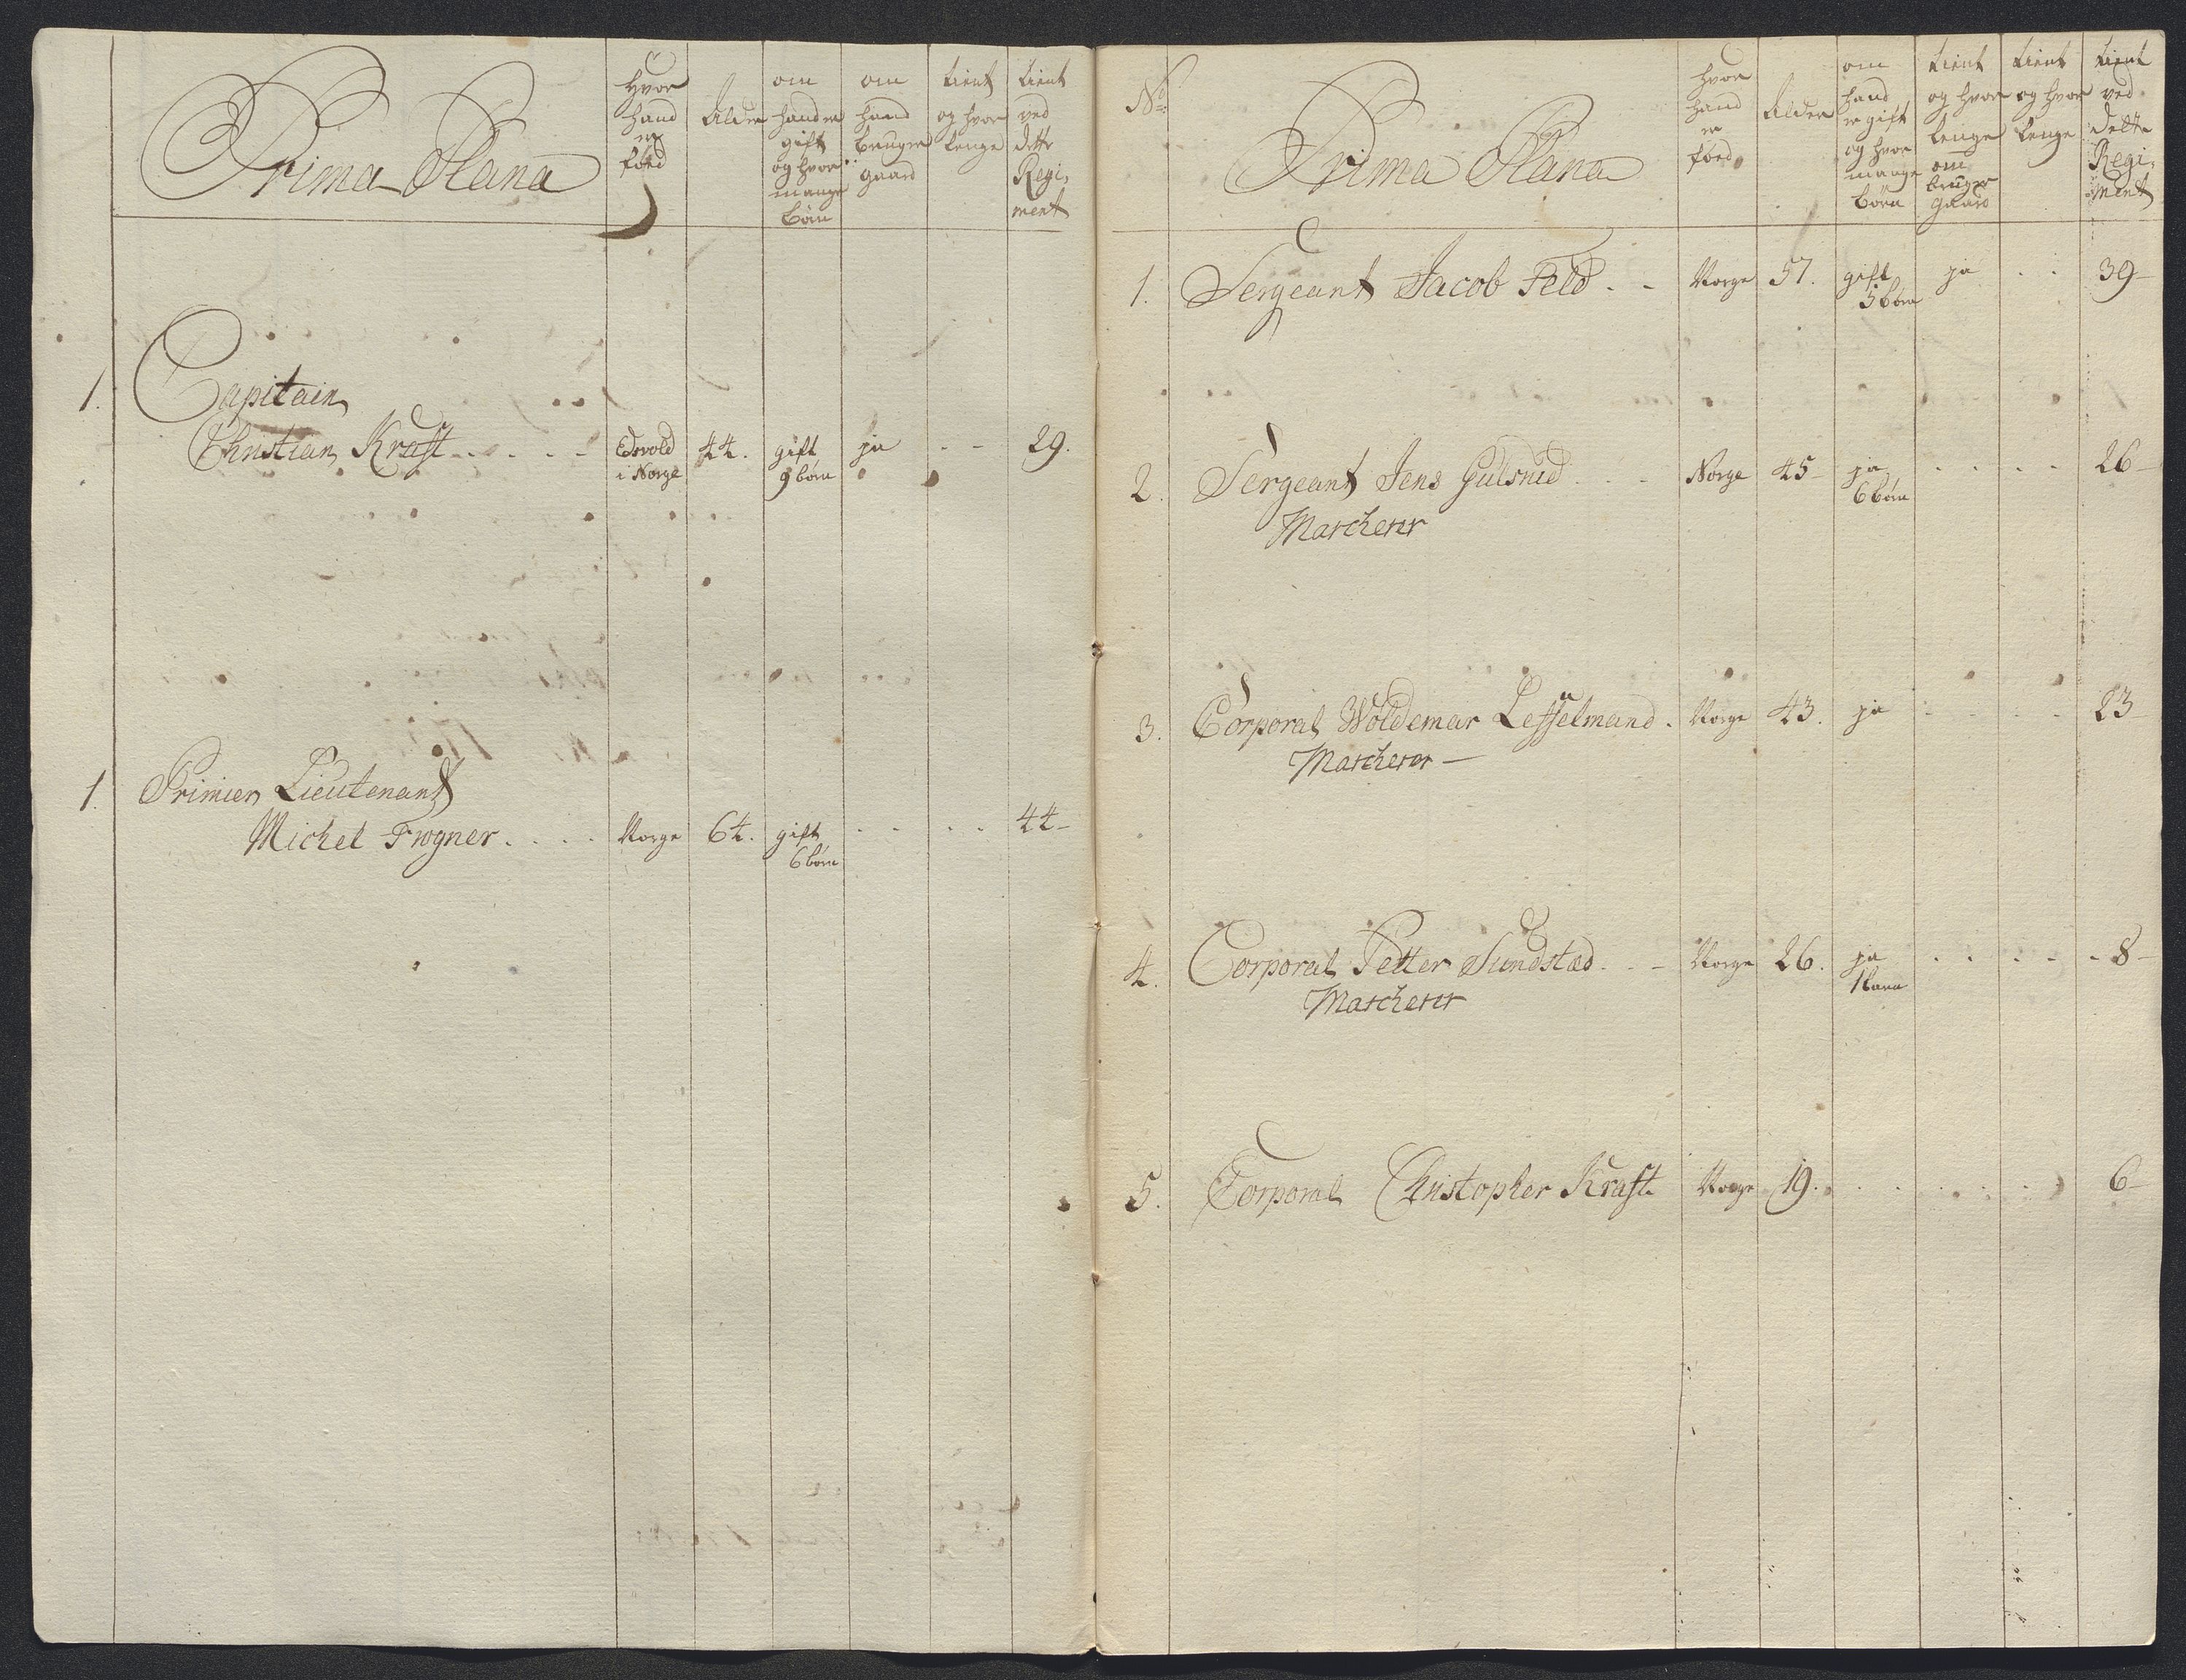 Prima Plana
Hvor hand er föed
Alder
om hand er gift og hvor mange börn
om hand bruger gaard
tient og hvor lenge
tient ved dette Regi, ment
1. Capitain
Christian Kraft - - - - - Edsvold i Norge 44. gift 9 börn ja - - 29.
1. Primier Lieutenant
Michel Frogner . . . . Norge 64. gift 6 börn . . . . 44-
No
Prima Plana
hvor hand er föed
Alder
om hand er gift og hvor mange börn
tient og hvor lenge om bruger gaard
tient og hvor lenge
tient ved dette Regi, ment
1. Sergeant Jacob Feld - - Norge 57. gift 5 börn ja . . 39-
2. Sergeant Jens Gulsued - - - Norge 45- ja 6 börn . . . . 26-
Marcherer
3. Corporal Woldemar Lesselmand. Norge 43. ja . . . . 23
Marcherer -
4. Corporal Petter Sundstæd - - - Norge 26. ja 1 barn . . . . . 8-
Marcherer
5. Corporal Christopher Kraft Norge 19. . . . . . . 6-